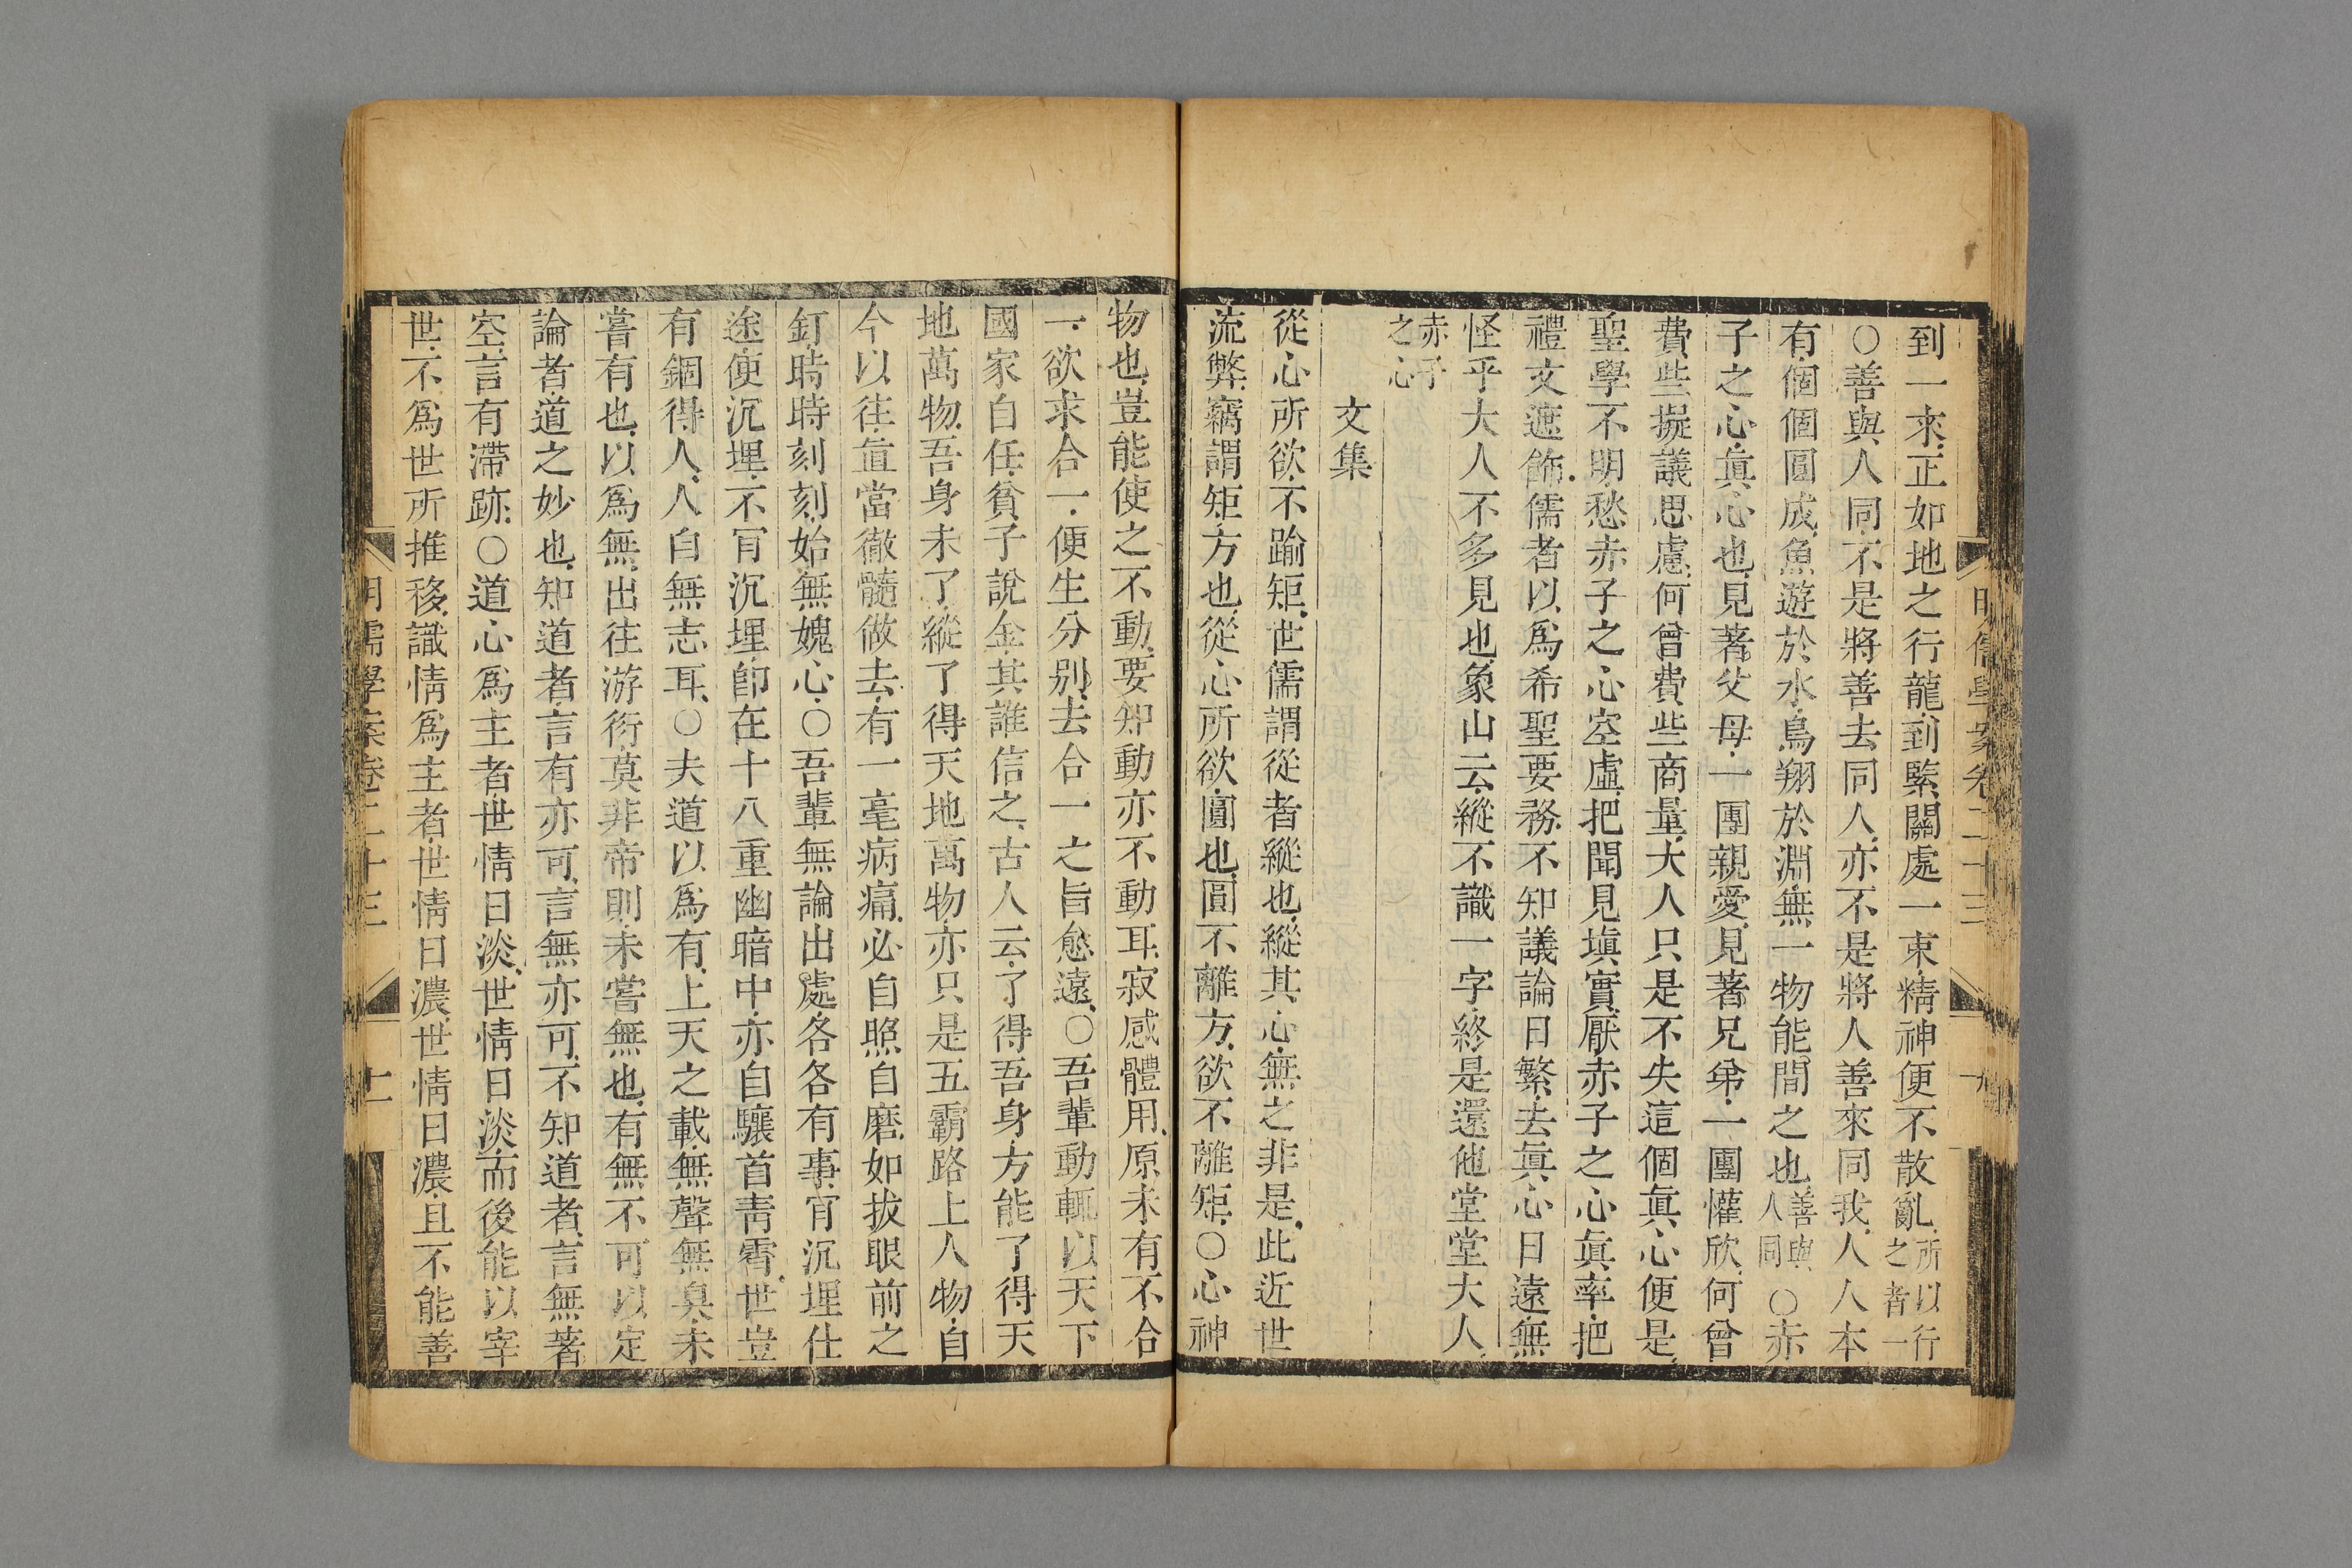 明儒學案卷二十三
到一來正如地之行龍到緊關處一束精神便不散亂所以行之者一
○善與人同不是將善去同人亦不是將人善來同我人人本
有個個圓成魚遊於水鳥翔於淵無一物能間之也善與人同○赤
子之心眞心也見著父母一團親愛見著兄弟一團懽欣何曾
費些擬議思慮何曾費些商量大人只是不失這個眞心便是
聖學不明愁赤子之心空虛把聞見塡實厭赤子之心眞率把
禮文遮飾儒者以爲希聖要務不知議論日繁去眞心日遠無
怪乎大人不多見也象山云縱不識一字終是還他堂堂大人
赤子之心
文集
從心所欲不踰矩世儒謂從者縱也縱其心無之非是此近世
流弊竊謂矩方也從心所欲圓也圓不離方欲不離矩○心神
物也豈能使之不動要知動亦不動耳寂感體用原未有不合
一欲求合一便生分別去合一之旨愈遠○吾輩動輒以天下
國家自任貧子說金其誰信之古人云了得吾身方能了得天
地萬物吾身未了縱了得天地萬物亦只是五霸路上人物自
今以往直當徹髓做去有一毫病痛必自照自磨如拔眼前之
釘時時刻刻始無媿心○吾輩無論出處各各有事肎沉埋仕
途便沉埋不肎沉埋卽在十八重幽暗中亦自驤首靑霄世豈
有錮得人人自無志耳○夫道以爲有上天之載無聲無臭未
嘗有也以爲無出往游衍莫非帝則未嘗無也有無不可以定
論者道之妙也知道者言有亦可言無亦可不知道者言無著
空言有滯跡○道心爲主者世情日淡世情日淡而後能以宰
世不爲世所推移識情爲主者世情日濃世情日濃且不能善
明儒學案卷二十三